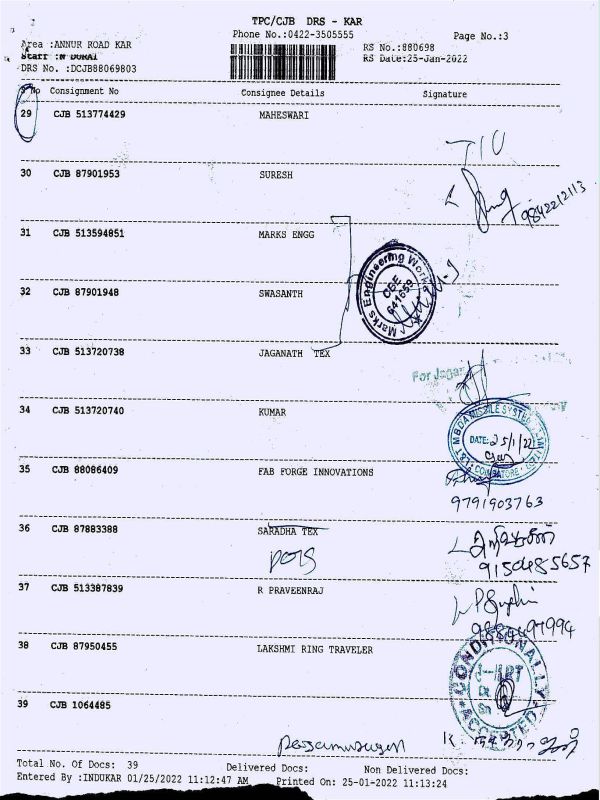 TPC/CJB DRS - KAR
Phone No.:0422-3505555
Page No.:3
Area :ANNUR ROAD KAR
RS No.:880698
Staff :N DURAI
RS Date:25-Jan-2022
DRS No. :DCJB88069803
S No Consignment No Consignee Details Signature
29 CJB 513774429 MAHESWARI
30 CJB 87901953 SURESH
9842212113
31 CJB 513594851 MARKS ENGG
Marks Engineering Works
CBE
641659
32 CJB 87901948 SWASANTH
33 CJB 513720738 JAGANATH TEX
For Jagan
34 CJB 513720740 KUMAR
L&T MBDA MISSILE SYSTEMS LIMITED
DATE: 25/1/22
COIMBATORE
35 CJB 88086409 FAB FORGE INNOVATIONS
9791903763
36 CJB 87883388 SARADHA TEX
9150485657
37 CJB 513387839 R PRAVEENRAJ
38 CJB 87950455 LAKSHMI RING TRAVELER
CONDITIONALLY
ACCEPTED
39 CJB 1064485
Total No. Of Docs: 39 Delivered Docs: Non Delivered Docs:
Entered By :INDUKAR 01/25/2022 11:12:47 AM Printed On: 25-01-2022 11:13:24